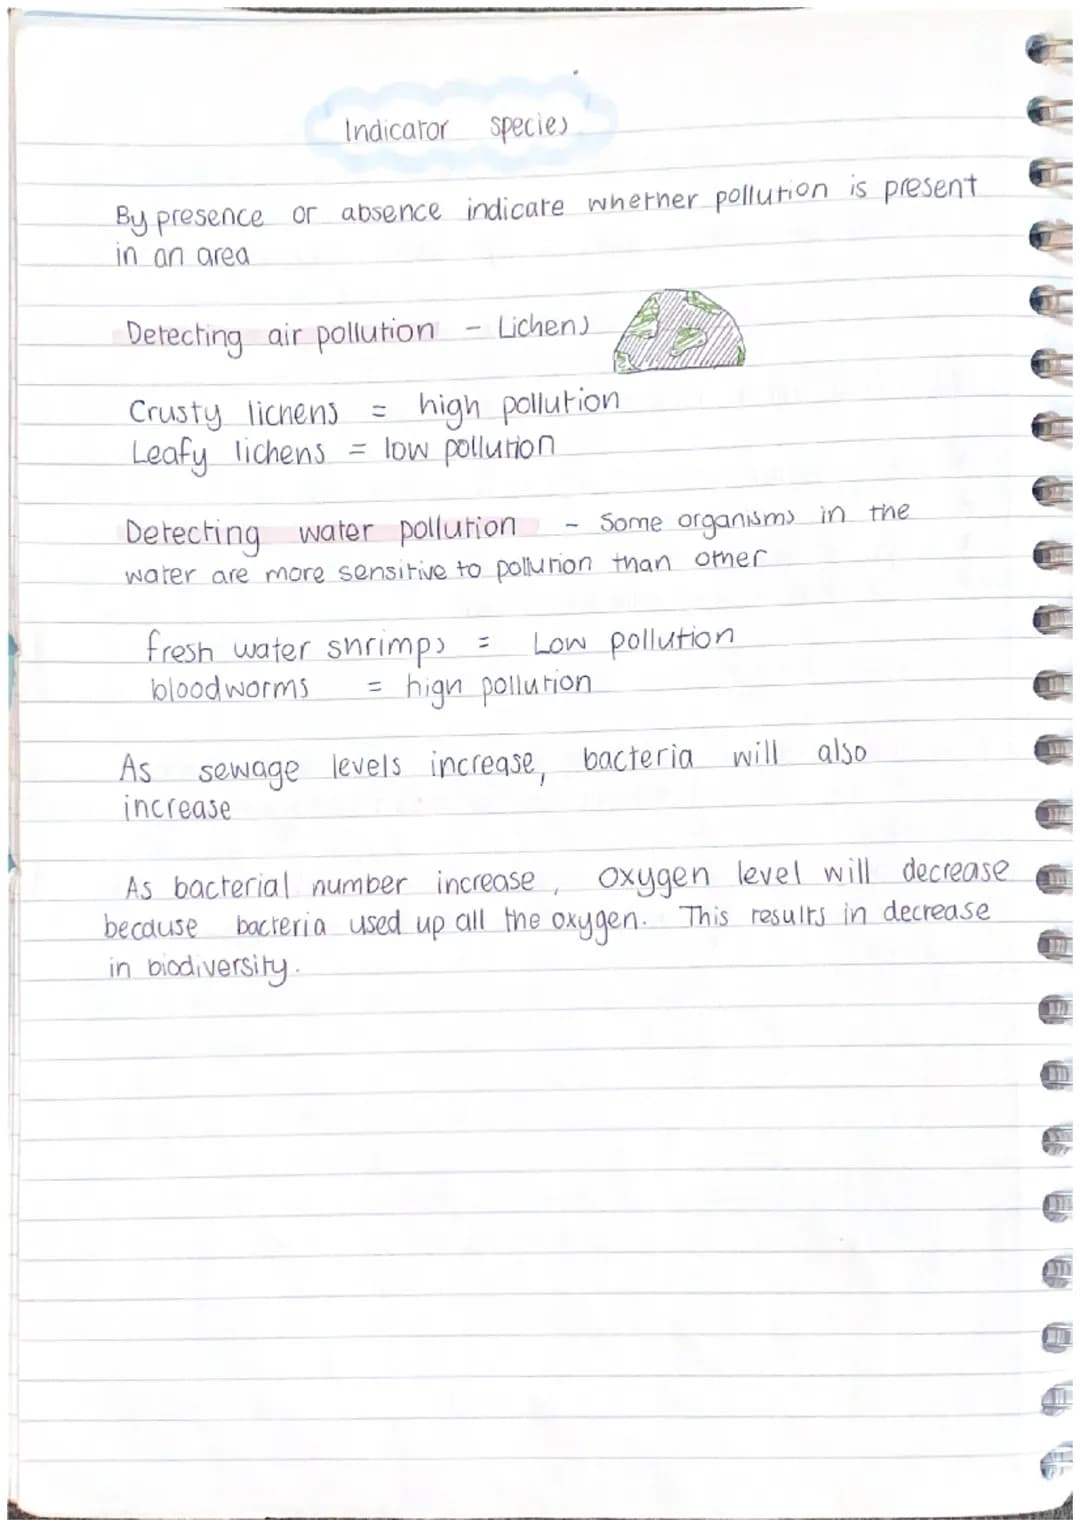 Indicator species
By presence or absence indicate whether pollution is present
in an area
Detecting air pollution - Lichens
Crusty lichens = high pollution
Leafy lichens = low pollution
Detecting water pollution - Some organisms in the
water are more sensitive to pollution than other
fresh water shrimps = Low pollution
bloodworms = high pollution
As sewage levels increase, bacteria will also
increase
As bacterial number increase, oxygen level will decrease
because bacteria used up all the oxygen. This results in decrease
in biodiversity.